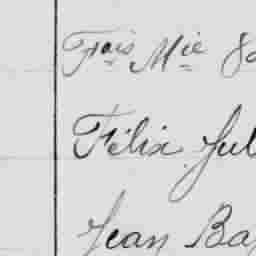 Fois Mie
Félix Jul
Jean Bap